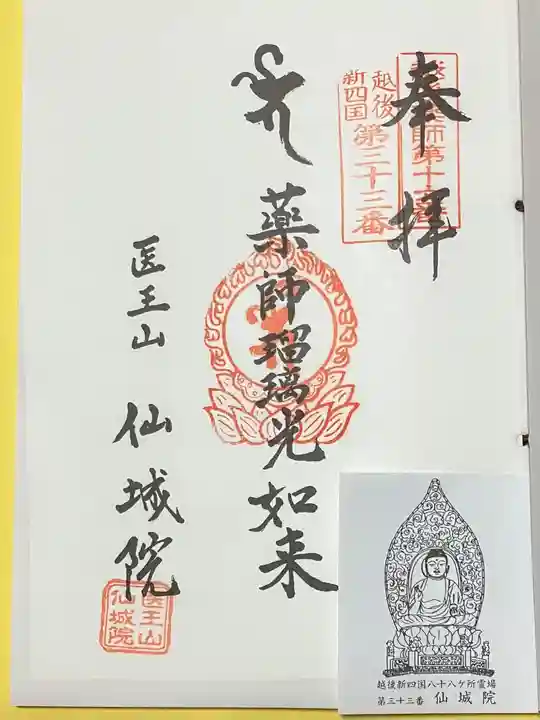 奉拝
越後
新四国
第三十三番
薬師瑠璃光如来
医王山 仙城院
医王山
仙城院
越後新四国八十八ケ所霊場
第三十三番 仙城院